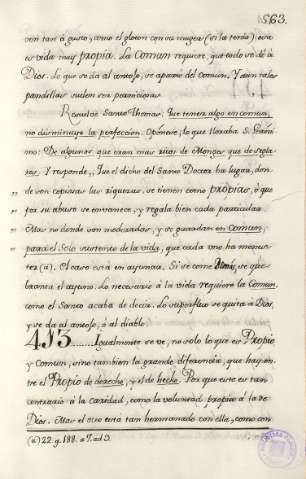 563.
ven tan á gusto, como el gloton con su muger (es la torda): esta
es vida muy propia. La Comun requiere, que todo se dé á
Dios. Lo que se da al antojo, se aparta del comun. Y aun tales
pandillas suelen ser perniciosas.
Resuelve Santo Thomas: Que tener algo en comun,
no disminuye la perfeccion. Opónese, lo que lloraba S. Geróni
mo: De algunos que eran mas ricos de Monges que de segla
res. Y responde, Que el dicho del Santo Doctor ha lugar, don
de son copiosas las riquezas, se tienen como propias, ó que
por su abuso se envanece, y regala bien cada particular.
Mas no donde son moderadas, y se guardan en comun,
para el solo sustento de la vida, que cada uno ha menes
ter (a). El caso está en ayunas. Si se come demás, se que
branta el ayuno. Lo necesario á la vida requiere la Comun,
como el Santo acaba de decir. Lo superfluo se quita á Dios,
y se da al antojo, ó al diablo.
413......Igualmente se ve, no solo lo que es Propio
y Comun, sino tambien la grande diferencia, que hay en
tre el Propio de derecho, y el de hecho. Por que este es tan
contrario á la caridad, como la voluntad propia á la de
Dios. Mas el otro está tan hermanado con ella, como con
(a) 22. q. 188. a 7. ad 3.